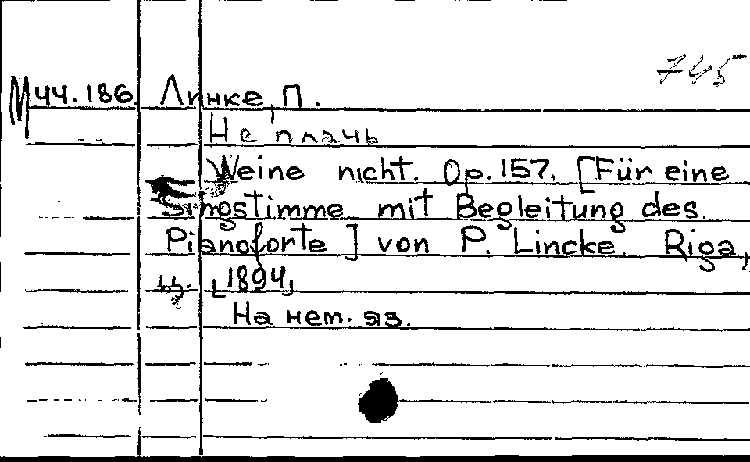 745
М44.186. Линке, П.
Не плачь
Weine nicht. Op. 157. [Für eine
Singstimme mit Begleitung des
Pianoforte] von P. Lincke. Riga,
[1894]
На нем. яз.